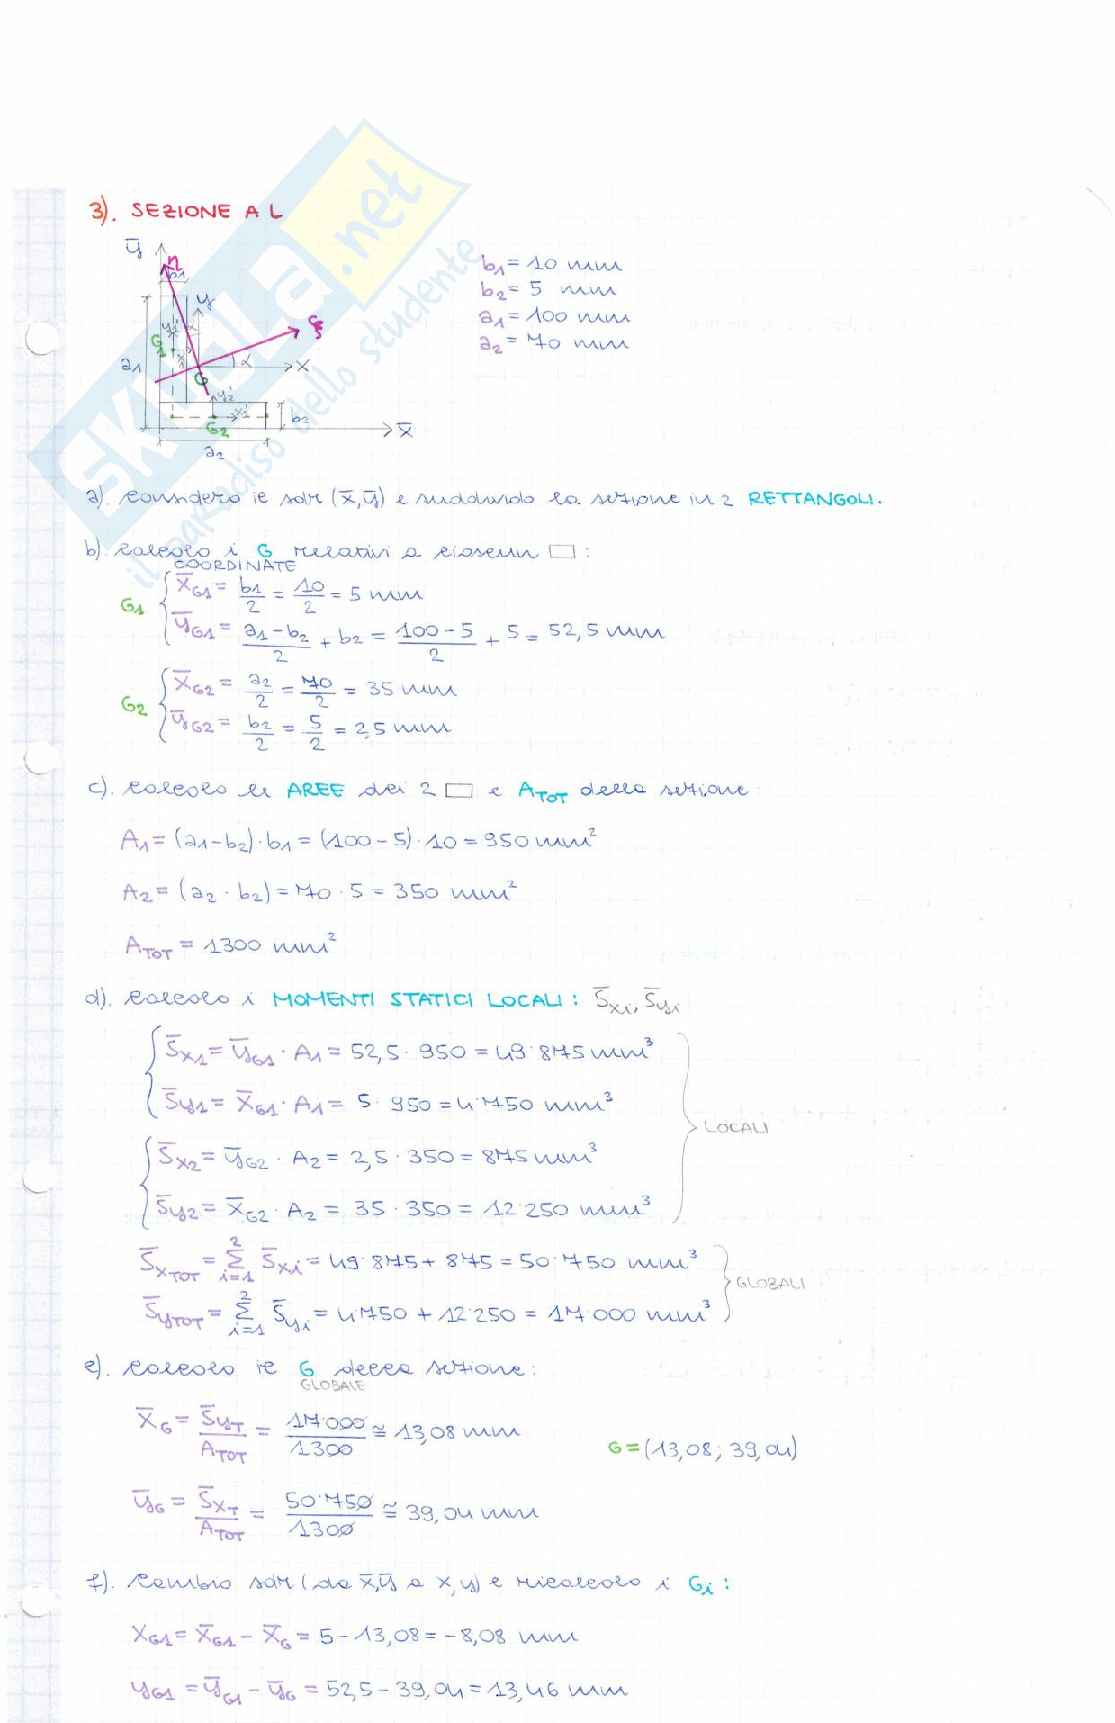 3). SEZIONE A L
b₁ = 10 mm
b₂ = 5 mm
a₁ = 100 mm
a₂ = 70 mm
ȳ
η
b₁
y
ξ
G₁
a₁
α
x
G
y₂'
x₂'
G₂
b₂
x̄
a₂
SKUOLA.net
il paradiso dello studente
a). Considero il sdr (x̄,ȳ) e suddivido la sezione in 2 RETTANGOLI.
b). Calcolo i G relativi a ciascun □:
COORDINATE
G₁ { x̄G1 = b₁/2 = 10/2 = 5 mm
ȳG1 = (a₁-b₂)/2 + b₂ = (100-5)/2 + 5 = 52,5 mm
G₂ { x̄G2 = a₂/2 = 70/2 = 35 mm
ȳG2 = b₂/2 = 5/2 = 2,5 mm
c). Calcolo le AREE dei 2 □ e ATOT della sezione
A₁ = (a₁-b₂)·b₁ = (100-5)·10 = 950 mm²
A₂ = (a₂·b₂) = 70·5 = 350 mm²
ATOT = 1300 mm²
d). Calcolo i MOMENTI STATICI LOCALI: S̄xi, S̄yi
S̄x1 = ȳG1 · A₁ = 52,5 · 950 = 49·875 mm³
S̄y1 = x̄G1 · A₁ = 5 · 950 = 4·750 mm³
LOCALI
S̄x2 = ȳG2 · A₂ = 2,5 · 350 = 875 mm³
S̄y2 = x̄G2 · A₂ = 35 · 350 = 12·250 mm³
S̄xTOT = Σ²i=1 S̄xi = 49·875 + 875 = 50·750 mm³
GLOBALI
S̄yTOT = Σ²i=1 S̄yi = 4·750 + 12·250 = 17·000 mm³
e). Calcolo il G della sezione:
GLOBALE
x̄G = S̄yT/ATOT = 17·000/1300 ≅ 13,08 mm
G = (13,08; 39,04)
ȳG = S̄xT/ATOT = 50·750/1300 ≅ 39,04 mm
f). Cambio sdr (da x̄,ȳ a x,y) e ricalcolo i Gi:
xG1 = x̄G1 - x̄G = 5 - 13,08 = -8,08 mm
yG1 = ȳG1 - ȳG = 52,5 - 39,04 = 13,46 mm